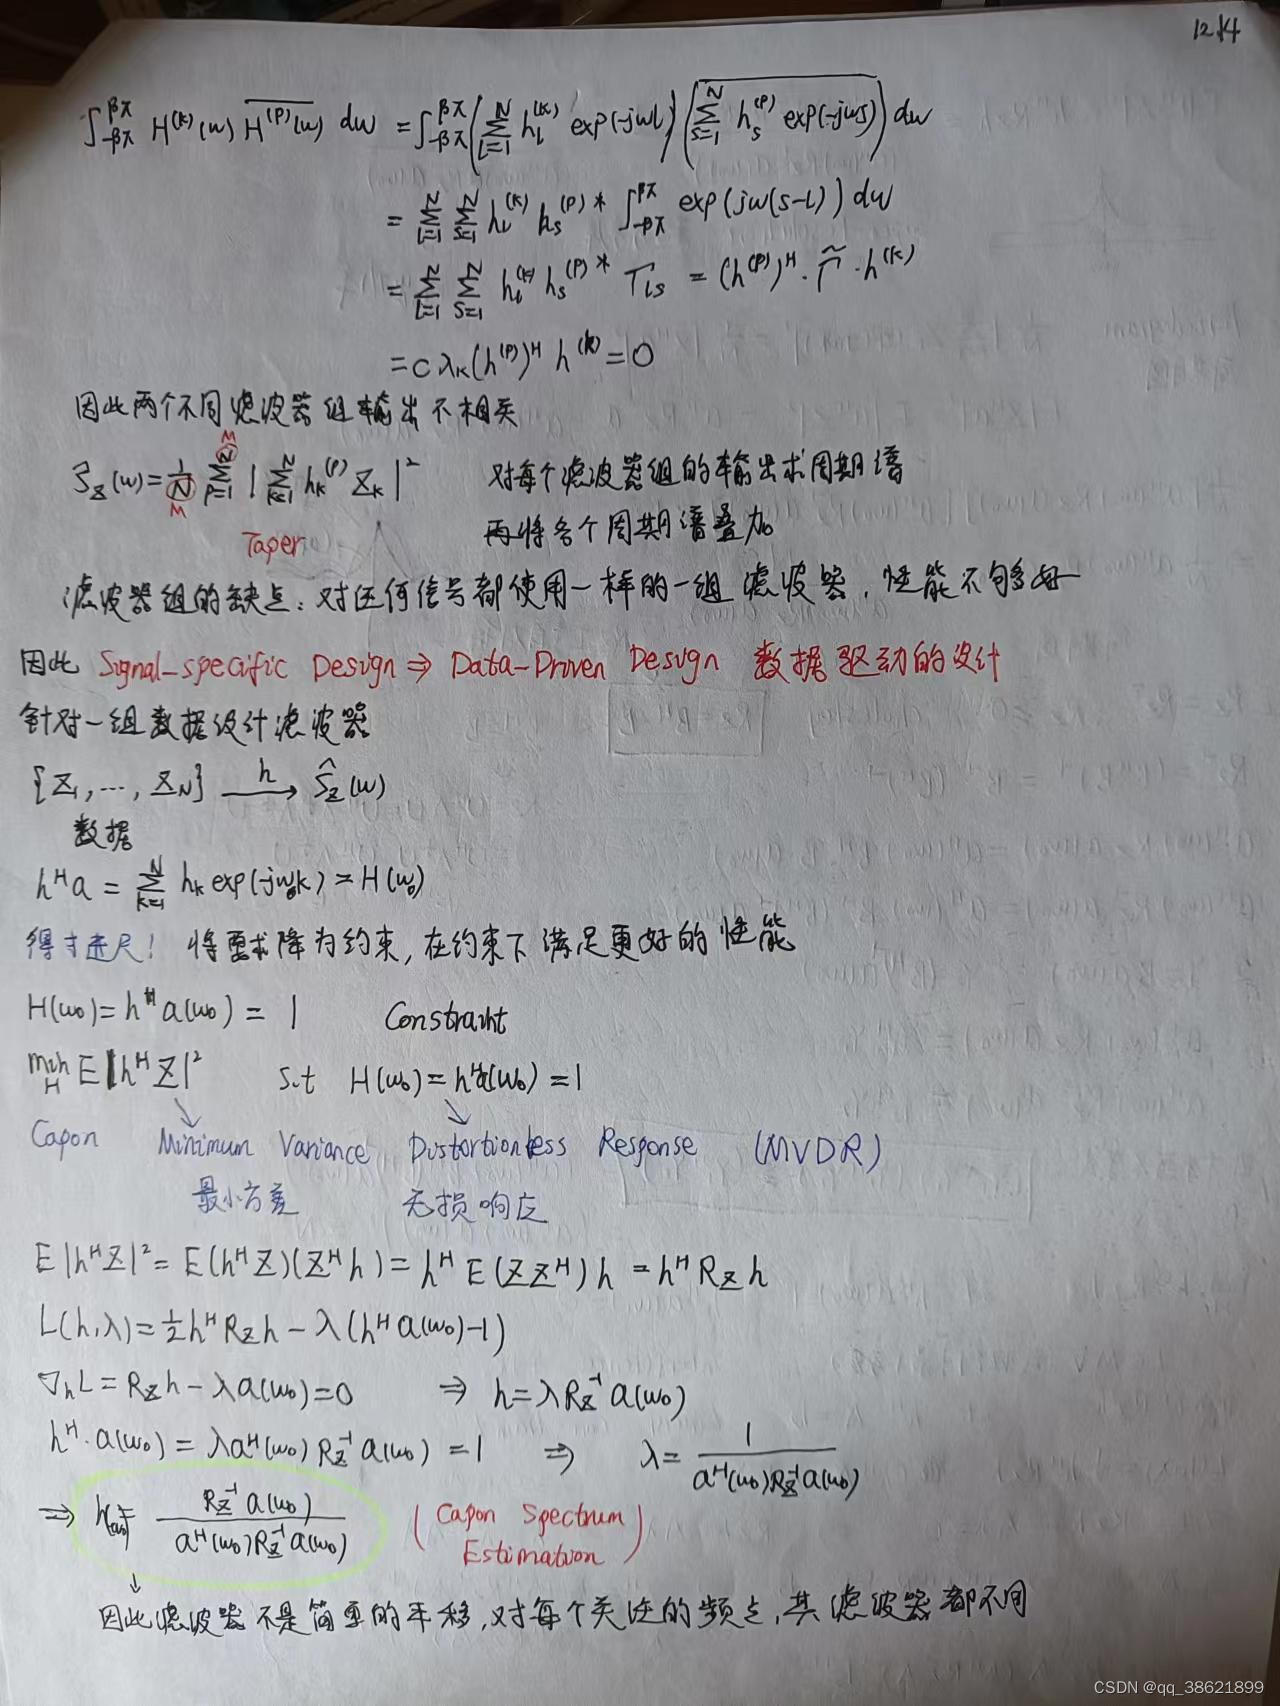 12.14
∫_{-βπ}^{βπ} H^{(k)}(w) \overline{H^{(P)}(w)} dw = ∫_{-βπ}^{βπ} (∑_{l=1}^{N} h_l^{(k)} exp(-jwl)) (\overline{∑_{s=1}^{N} h_s^{(P)} exp(-jws)}) dw
= ∑_{l=1}^{N} ∑_{s=1}^{N} h_l^{(k)} h_s^{(P)*} ∫_{-βπ}^{βπ} exp(jw(s-l)) dw
= ∑_{l=1}^{N} ∑_{s=1}^{N} h_l^{(k)} h_s^{(P)*} T_{ls} = (h^{(P)})^H · \tilde{T} · h^{(k)}
= C λ_k (h^{(P)})^H h^{(k)} = 0
因此两个不同滤波器组输出不相关
Ŝ_Z(w) = 1/N M ∑_{P=1}^{N M} | ∑_{k=1}^{N} h_k^{(P)} Z_k |² 对每个滤波器组的输出求周期谱
再将各个周期谱叠加
Taper
滤波器组的缺点：对任何信号都使用一样的一组滤波器，性能不够好
因此 Signal-specific Design ⇒ Data-Driven Design 数据驱动的设计
针对一组数据设计滤波器
{Z_1, ..., Z_N} —h→ Ŝ_Z(w)
数据
h^H a = ∑_{k=1}^{N} h_k exp(-jw_0k) = H(w_0)
得寸进尺！ 将要求降为约束，在约束下满足更好的性能
H(w_0) = h^H a(w_0) = 1 Constraint
min_H E|h^H Z|² s.t H(w_0) = h^H a(w_0) = 1
Capon Minimum Variance Distortionless Response (MVDR)
最小方差 无损响应
E|h^H Z|² = E(h^H Z)(Z^H h) = h^H E(ZZ^H) h = h^H R_Z h
L(h,λ) = ½ h^H R_Z h - λ(h^H a(w_0) - 1)
∇_h L = R_Z h - λa(w_0) = 0 ⇒ h = λ R_Z^{-1} a(w_0)
h^H · a(w_0) = λ a^H(w_0) R_Z^{-1} a(w_0) = 1 ⇒ λ = 1 / (a^H(w_0) R_Z^{-1} a(w_0))
⇒ h(w_0) = R_Z^{-1} a(w_0) / (a^H(w_0) R_Z^{-1} a(w_0)) (Capon Spectrum
Estimation)
↓
因此滤波器不是简单的平移，对每个关注的频点，其滤波器都不同
CSDN @qq_38621899